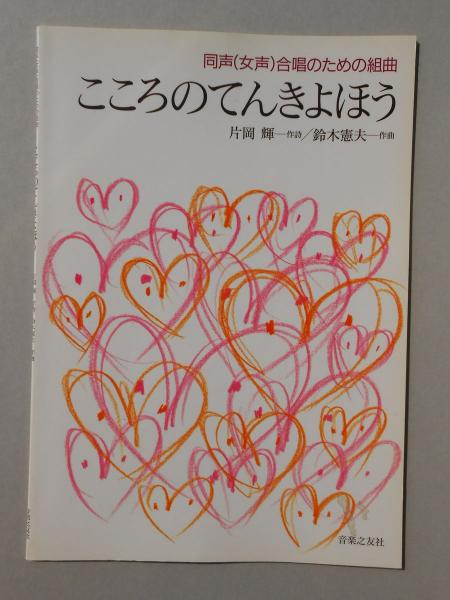 同声(女声)合唱のための組曲
こころのてんきよほう
片岡 輝―作詩／鈴木憲夫―作曲
音楽之友社